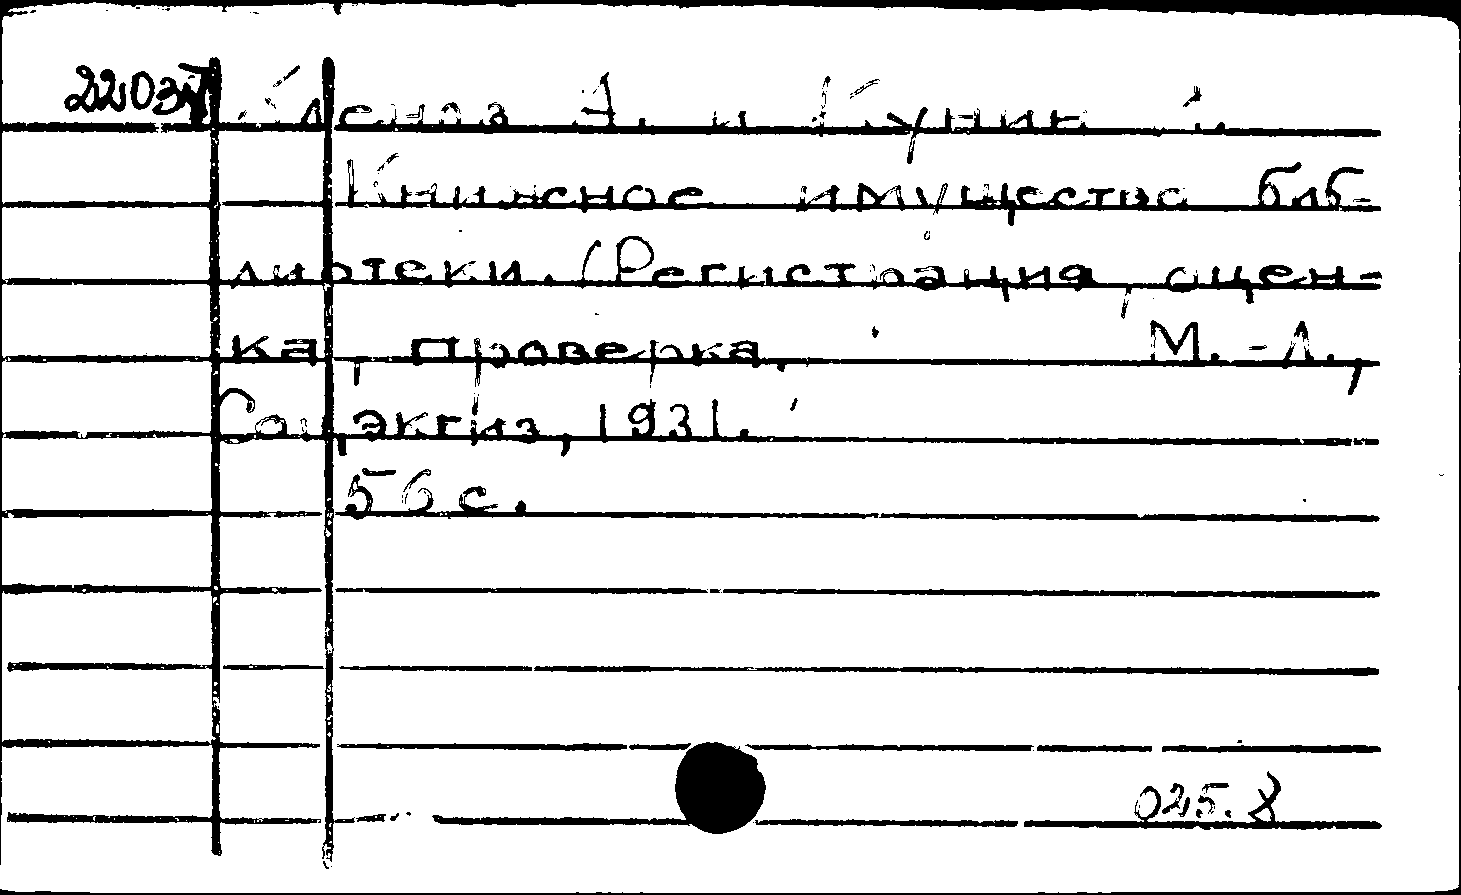 Кленов А. и Кунин
Книжное имущество биб-
лиотеки. (Регистрация, оцен-
ка, проверка. М.-Л.,
Соцэкгиз, 1931.
56 с.
025.8